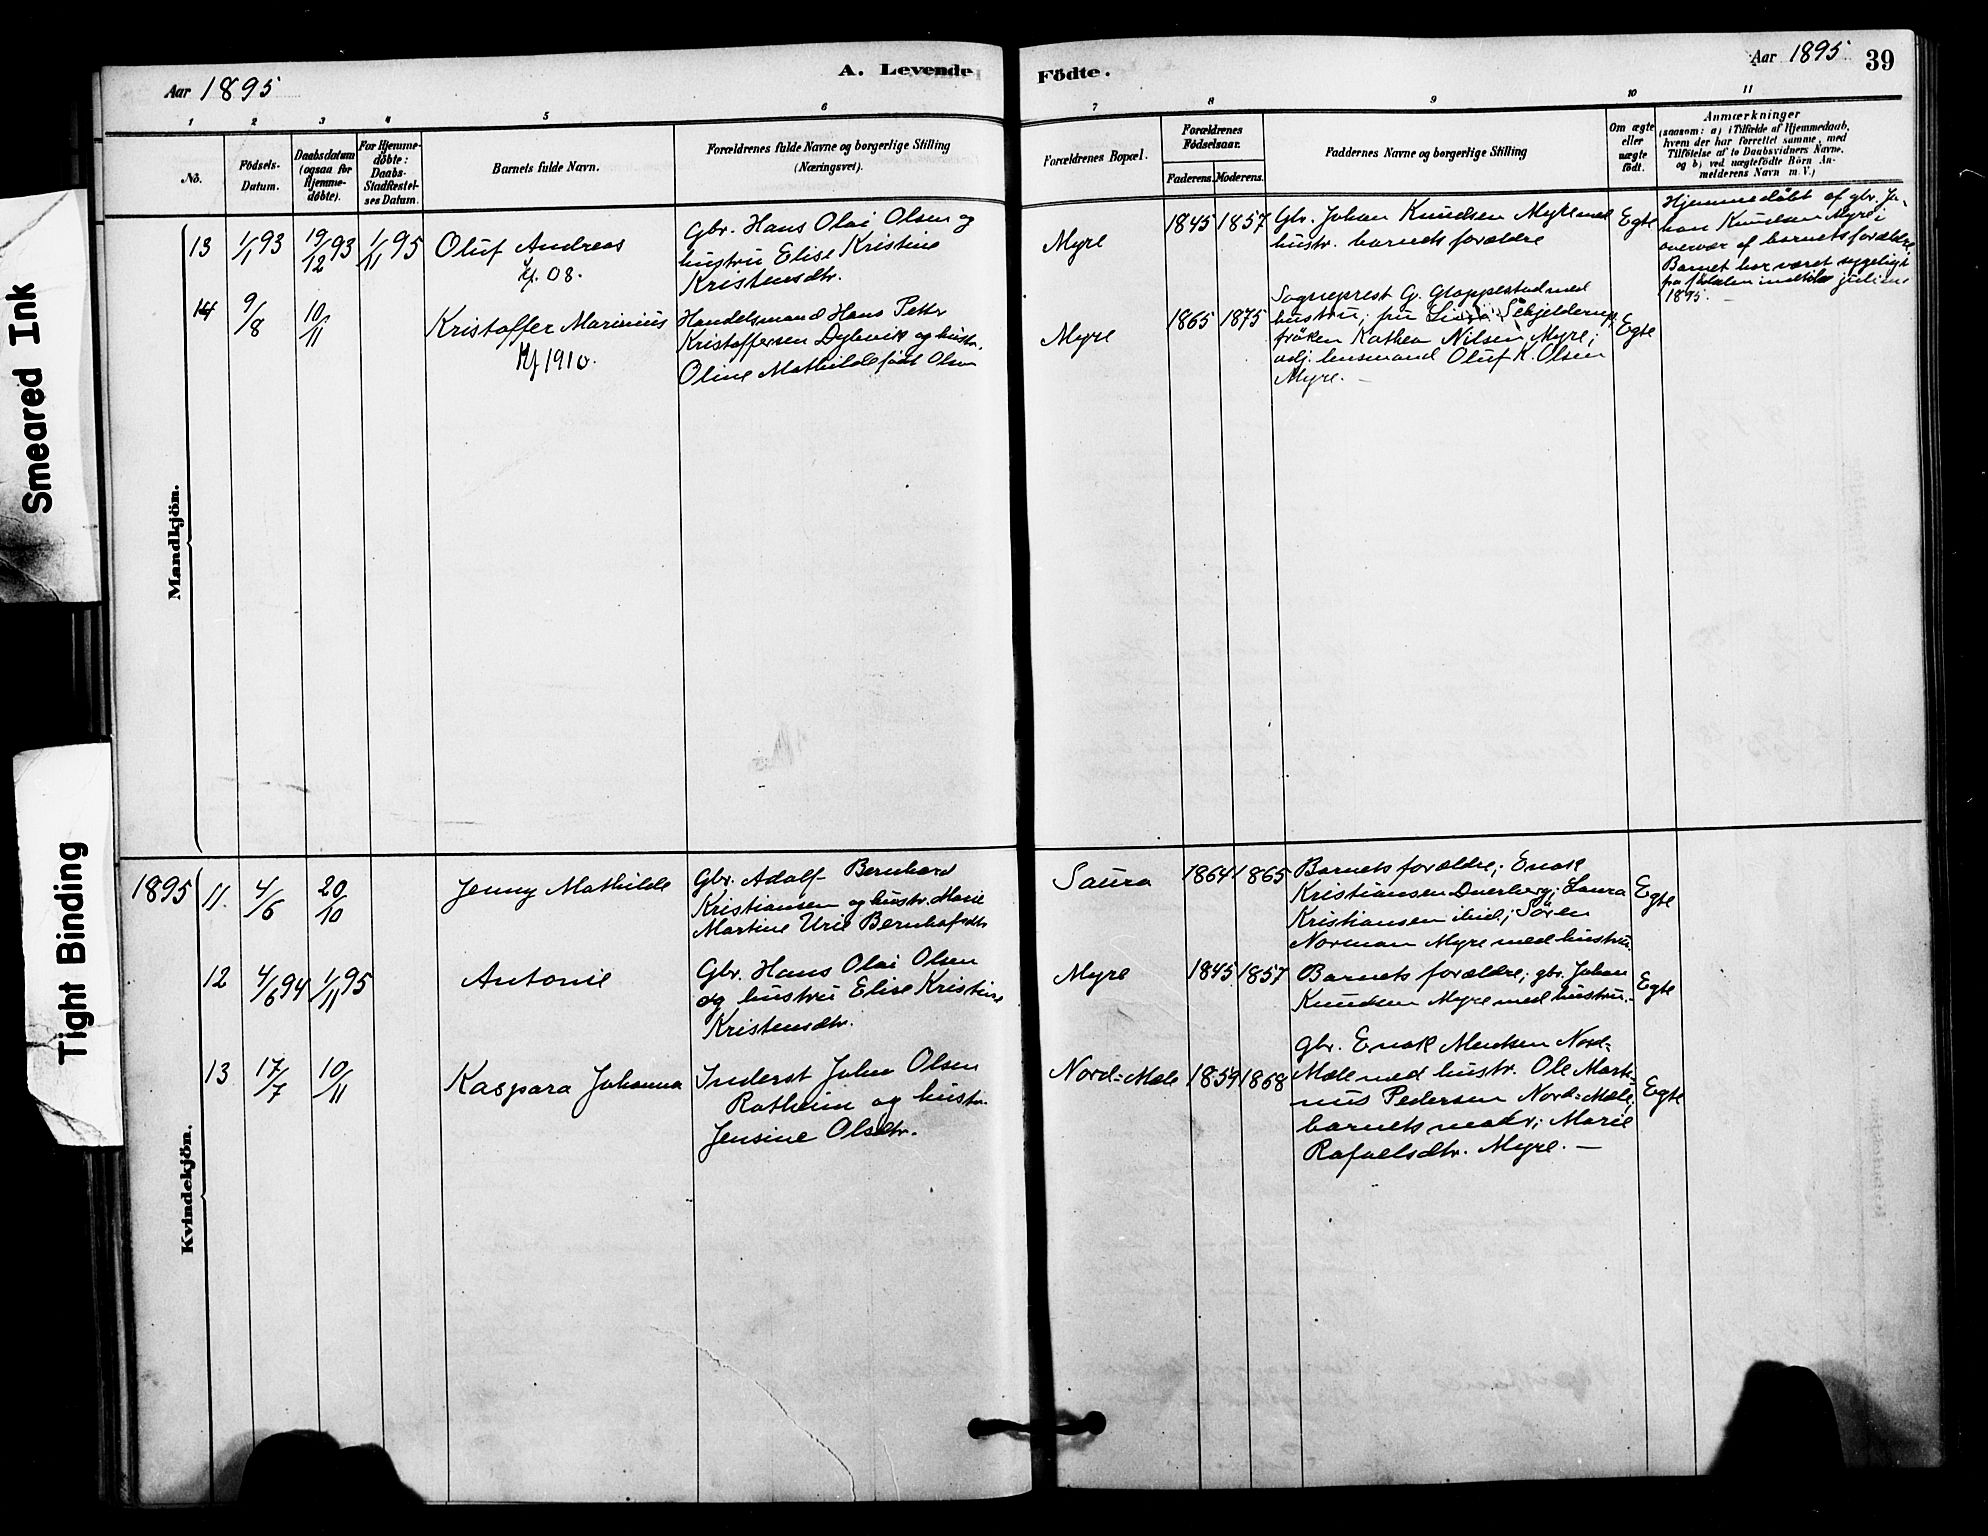 Smeared Ink
Tight Binding
Aar 1895
A. Levende
Födte.
Aar 1895
39
1 2 3 4 5 6 7 8 9 10 11
Nô.
Födsels-
Datum.
Daabsdatum
(ogsaa for
Hjemme-
döbte).
For Hjemme-
döbte:
Daabs-
Stadfæstel-
ses Datum.
Barnets fulde Navn.
Forældrenes fulde Navne og borgerlige Stilling
(Næringsvei).
Forældrenes Bopæl.
Forældrenes
Födselsaar.
Faderens. Moderens.
Faddernes Navne og borgerlige Stilling
Om ægte
eller
uægte
födt.
Anmærkninger
(saasom: a) i Tilfælde af Hjemmedaab,
hvem der har forrettet samme, med
Tilföielse af to Daabsvidners Navne,
og b) ved uægtefödte Börn An-
melderens Navn m. V.)
Mandkjön.
13 1/1 93 19/12 93 1/11 95
Oluf Andreas
Kf. 08.
Gbr. Hans Olai Olsen og
hustru Elise Kristine
Kristensdtr.
Myre
1845 1857
Gbr. Johan Knudsen Myre med
hustr. barnets forældre
Egte
Hjemmedöbt af gbr. Jo-
han Knudsen Myre i
overvær af barnets forældre.
Barnet har været sygeligt
fra födselen indtil juli
1895.
14 9/8 10/11
Kristoffer Marinius
Kf 1910.
Handelsmand Hans Petter
Kristoffersen Dybvik og hustr.
Oline Mathilde födt Olsen
Myre
1865 1875
Sogneprest G. Gloppestad med
hustru; fru Schjelderup,
fröken Kathea Nilsen Myre;
husmand Oluf K. Olsen
Myre. —
Egte
Kvindekjön.
1895
11. 4/6 20/10
Jenny Mathilde
Gbr. Adolf Bernhard
Kristiansen og hustr. Marie
Martine Urie
Saura
1864 1865
Barnets forældre; Enok
Kristiansen Dverberg; Laura
Kristiansen ibid; Sören
Norman Myre med hustru.
Egte
12 4/6 94 1/11 95
Antonie
Gbr. Hans Olai Olsen
og hustru Elise Kristine
Kristensdtr.
Myre
1845 1857
Barnets forældre; gbr. Johan
Knudsen Myre med hustru.
Egte
13 17/7 10/11
Kaspara Johanna
Inderst Johan Olsen
Rotheim og hustr.
Jensine Olsdtr.
Nord=Mæle
1859 1868
gbr. Enok Nord=
Mæle med hustr. Ole Marti-
nus Pedersen Nord=Mæle;
barnets mor; Marie
Rafaelsdtr. Myre. —
Egte